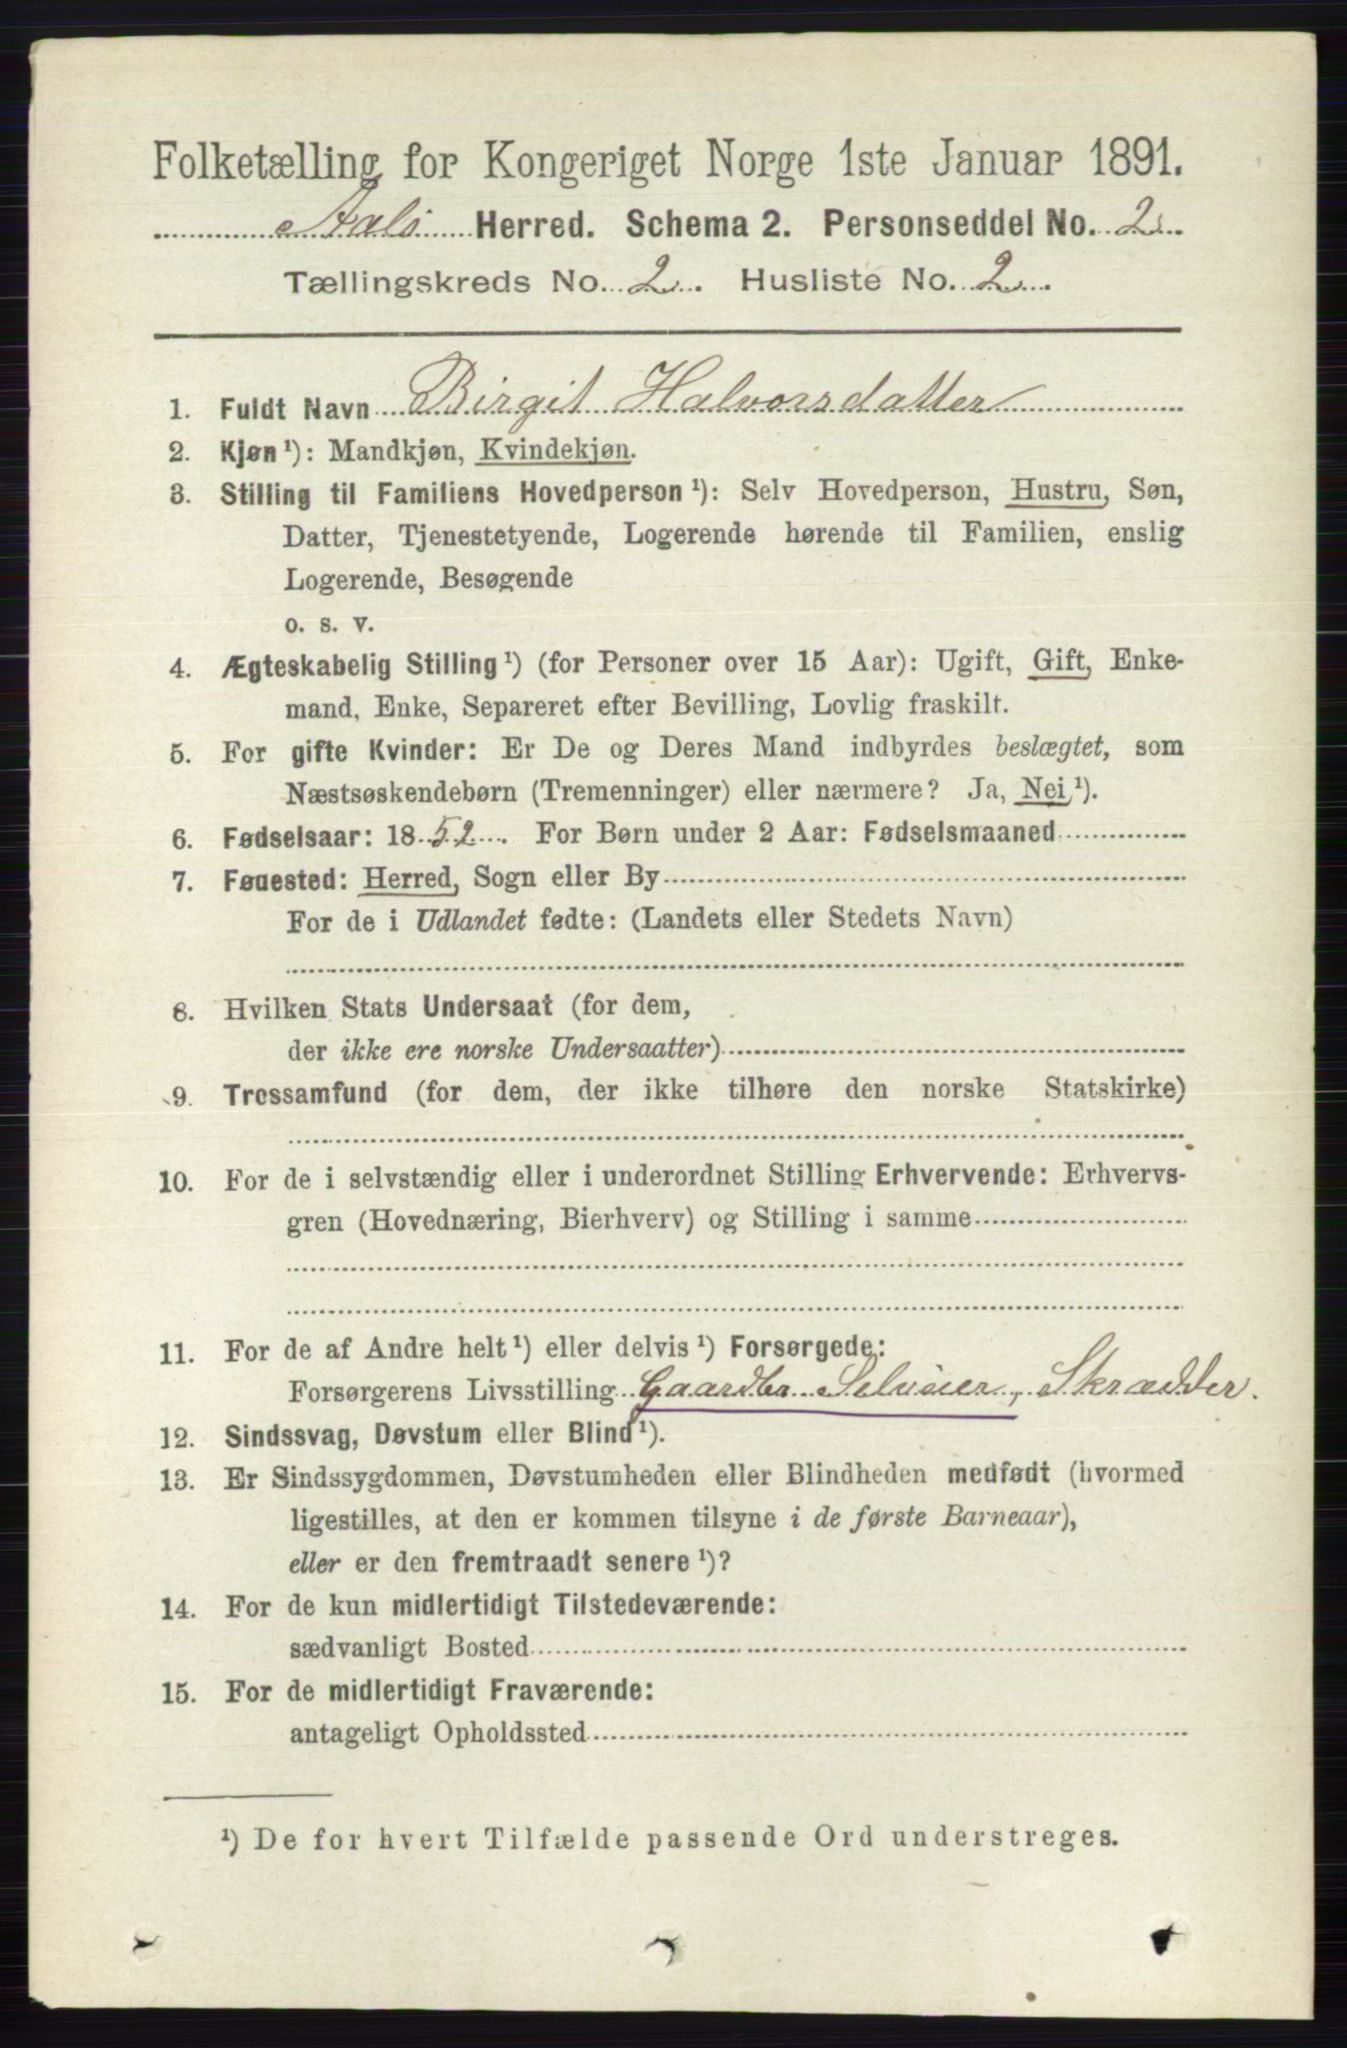 Folketælling for Kongeriget Norge 1ste Januar 1891.
Aals Herred. Schema 2. Personseddel No. 2
Tællingskreds No. 2. Husliste No. 2.
1. Fuldt Navn Birgit Halvorsdatter
2. Kjøn ¹): Mandkjøn, Kvindekjøn.
3. Stilling til Familiens Hovedperson ¹): Selv Hovedperson, Hustru, Søn,
Datter, Tjenestetyende, Logerende hørende til Familien, enslig
Logerende, Besøgende
o. s. v.
4. Ægteskabelig Stilling ¹) (for Personer over 15 Aar): Ugift, Gift, Enke-
mand, Enke, Separeret efter Bevilling, Lovlig fraskilt.
5. For gifte Kvinder: Er De og Deres Mand indbyrdes beslægtet, som
Næstsøskendebørn (Tremenninger) eller nærmere? Ja, Nei ¹).
6. Fødselsaar: 1852. For Børn under 2 Aar: Fødselsmaaned
7. Fødested: Herred, Sogn eller By
For de i Udlandet fødte: (Landets eller Stedets Navn)
8. Hvilken Stats Undersaat (for dem,
der ikke ere norske Undersaatter)
9. Trossamfund (for dem, der ikke tilhøre den norske Statskirke)
10. For de i selvstændig eller i underordnet Stilling Erhvervende: Erhvervs-
gren (Hovednæring, Bierhverv) og Stilling i samme
11. For de af Andre helt ¹) eller delvis ¹) Forsørgede:
Forsørgerens Livsstilling Gaardbr. Selveier, Skrædder.
12. Sindssvag, Døvstum eller Blind ¹).
13. Er Sindssygdommen, Døvstumheden eller Blindheden medfødt (hvormed
ligestilles, at den er kommen tilsyne i de første Barneaar),
eller er den fremtraadt senere ¹)?
14. For de kun midlertidigt Tilstedeværende:
sædvanligt Bosted
15. For de midlertidigt Fraværende:
antageligt Opholdssted
¹) De for hvert Tilfælde passende Ord understreges.